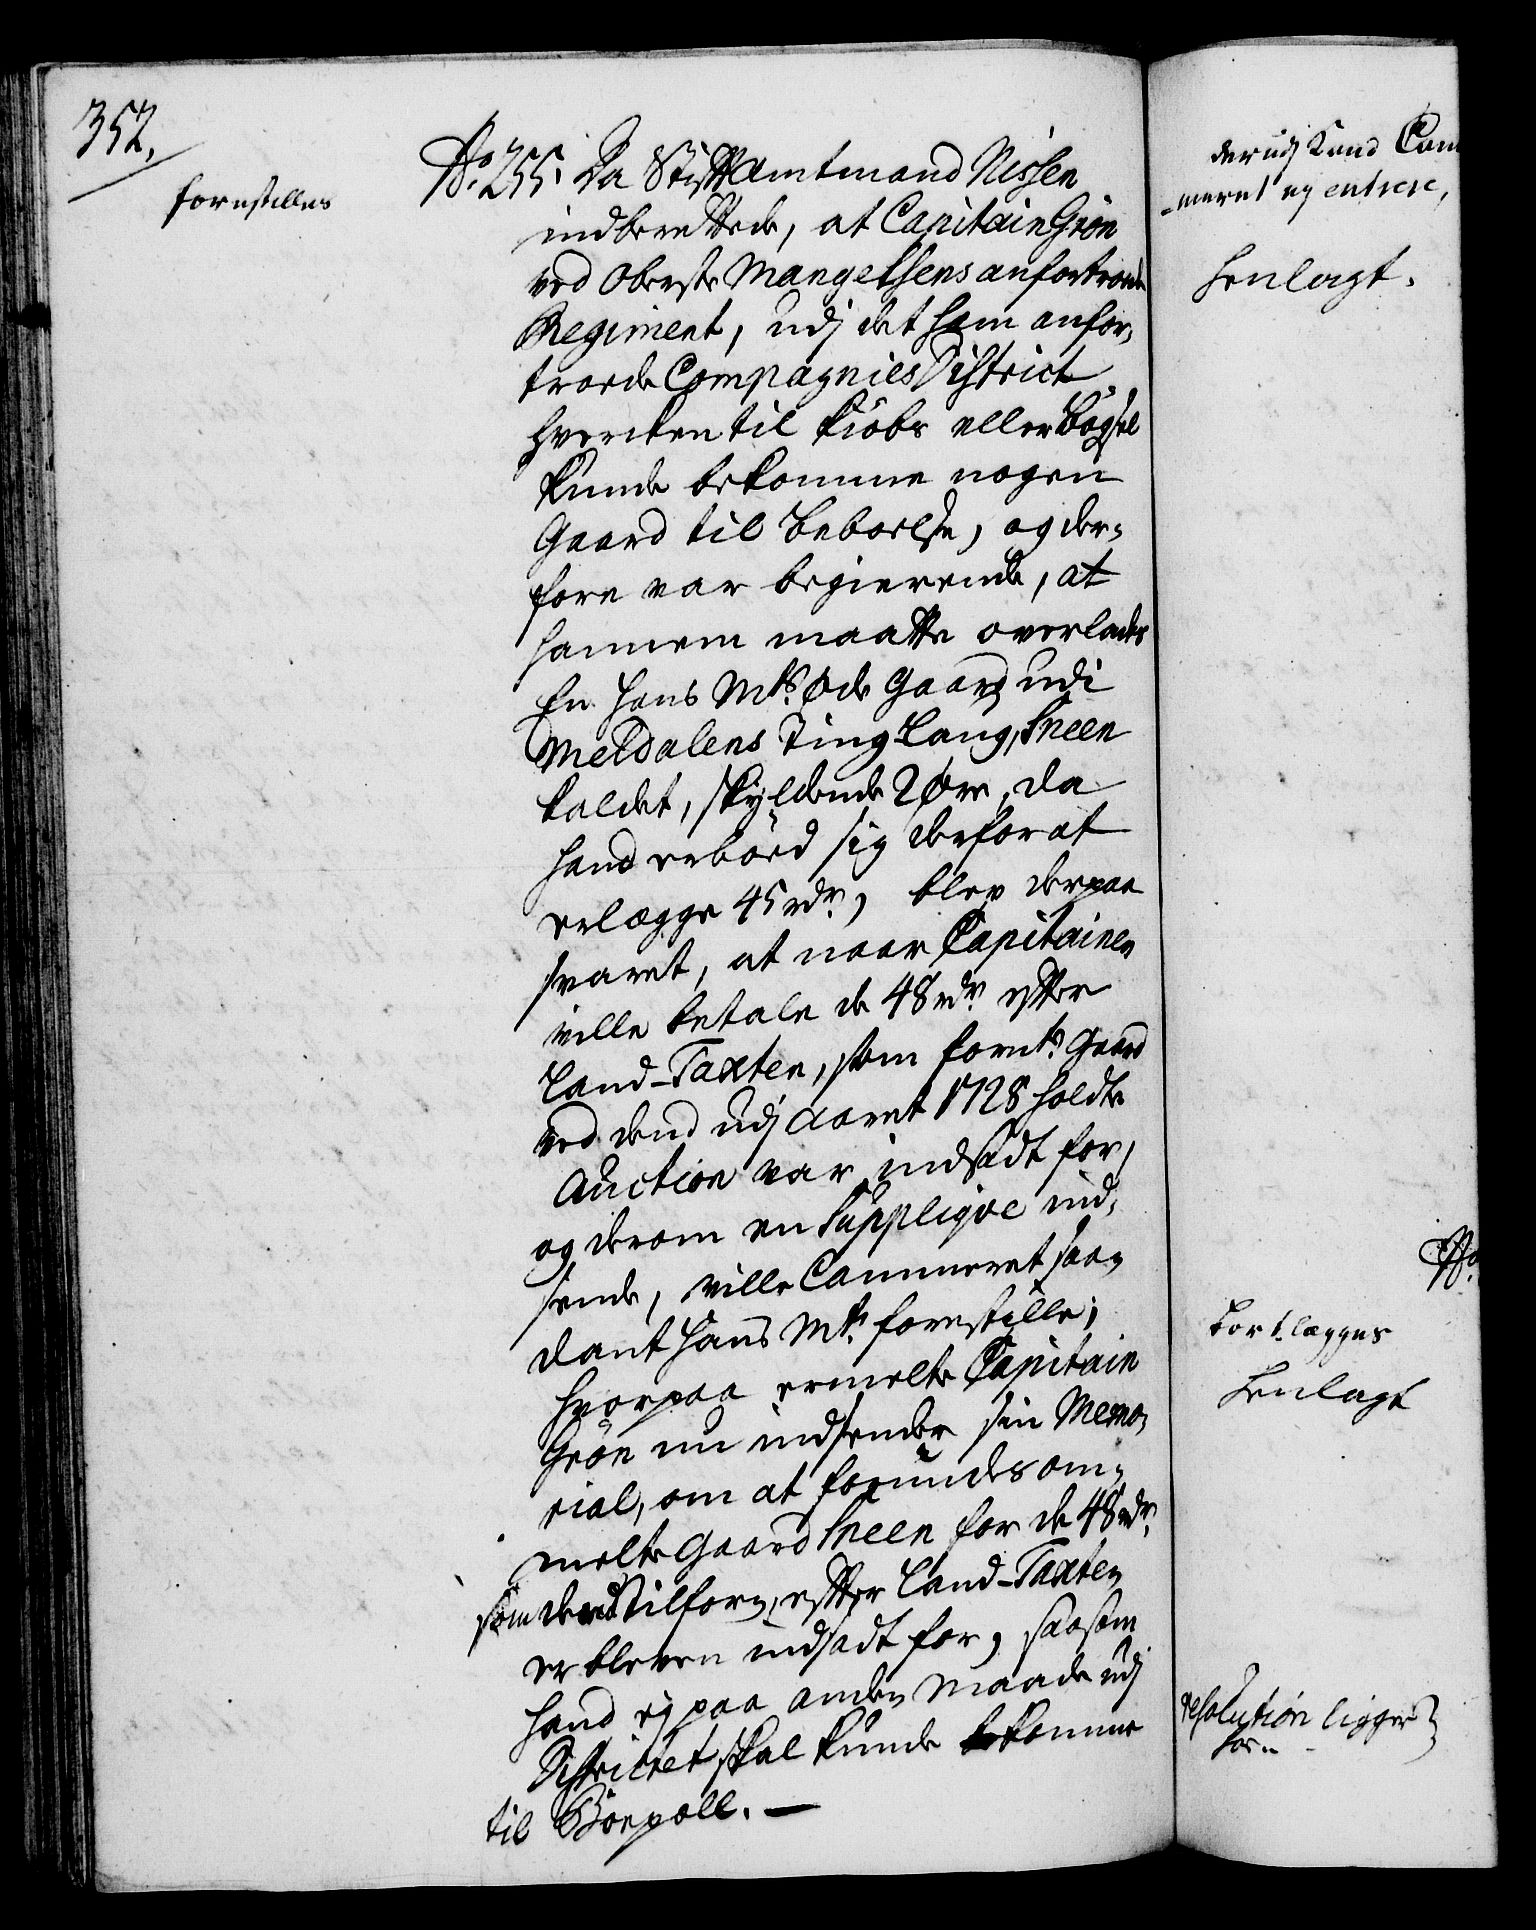 352.
forestilles
No. 255. Da Stiftamtmand Nissen
indberettede, at Capitain Grön
ved Oberste Mangelsens anfortroede
Regiment, udj det ham anfor,
troede Compagnies District
hvercken til Kiöbs eller Bögsel
kunde bekomme nogen
Gaard til Beboelse, og der,
fore var begierende, at
hannem maatte overlades
En hans Mts. øde Gaard udi
Meldalens Ting Laug, Sneen
kaldet, skyldende 2 Øre, da
hand erböed sig derfor at
erlægge 45 rdr., blev derpaa
svaret, at naar Capitainen
ville betale de 48 rdr. efter
Land-Taxten, som fornte. Gaard
ved dend udj Aaret 1728 holdte
Auction var indsadt for,
og derom en Suppliqve ind,
sende, ville Cammeret saa,
dant Hans Mt. forestille;
hvorpaa ermelte Capitain
Grön nu indsender sin Memo,
rial, om at forundes om,
melte Gaard Sneen for de 48 rdr.
som dend tilforn, efter Land-Taxten
er bleven indsadt for, saasom
hand ej paa anden Maade udj
Districtet skal kunde bekomme
til Boepæll. —
derudj kand Cam
-meret ej entrere,
henlagt.
No.
bortlægges
henlagt
resolution ligger
her